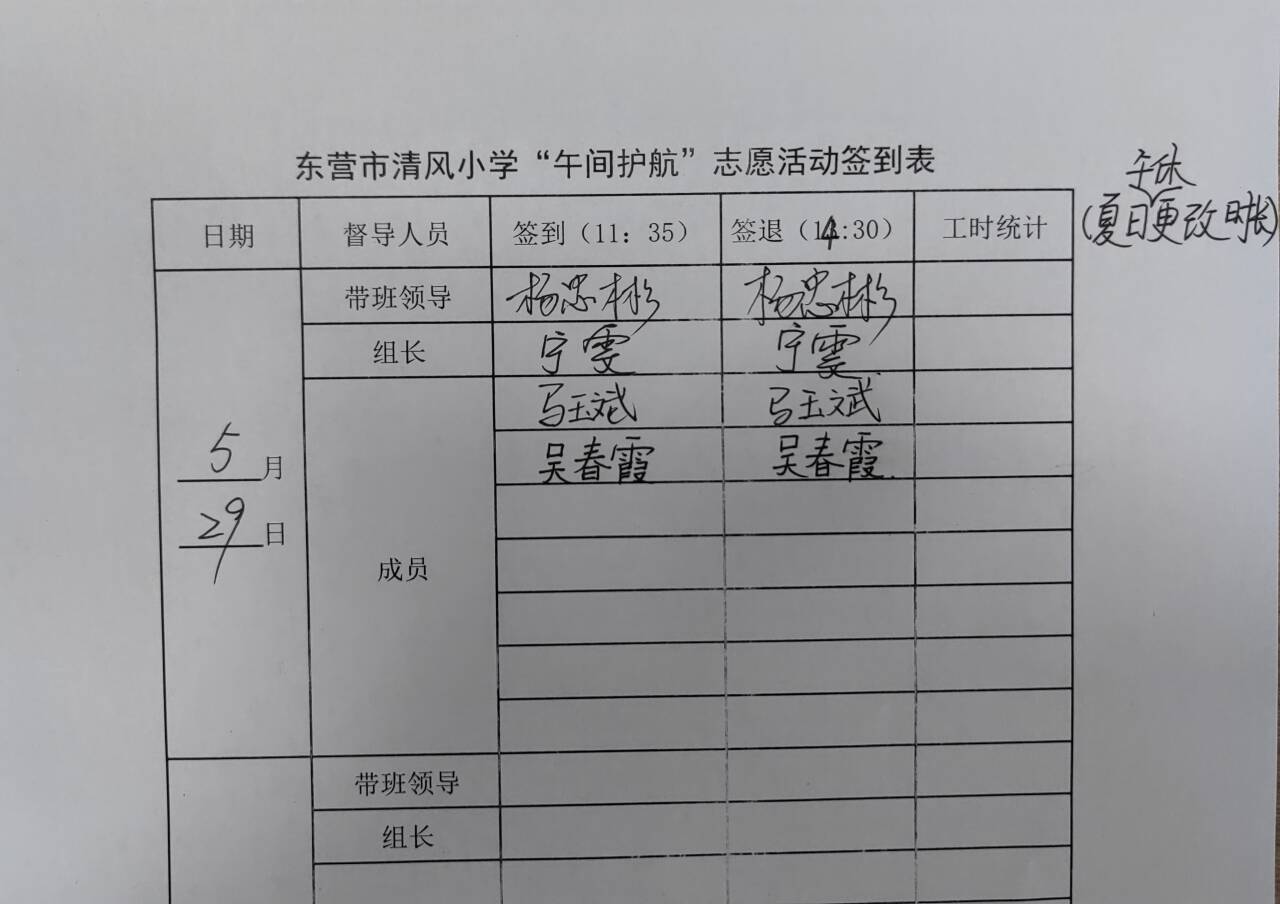 东营市清风小学“午间护航”志愿活动签到表
午休
(夏日更改时长)
日期 督导人员 签到（11：35） 签退（14:30） 工时统计
带班领导 杨忠彬 杨忠彬
组长 宁雯 宁雯
马玉斌 马玉斌
吴春霞 吴春霞
5月
29日
成员
带班领导
组长